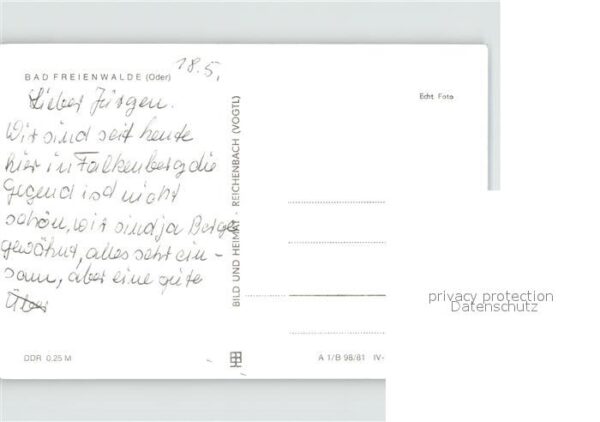 18.5.
BAD FREIENWALDE (Oder)
Echt Foto
Lieber Jürgen.
Wir sind seit heute
hier in Falkenberg, die
Gegend isd nicht
schön, wir sind ja Berge
gewöhnt, alles sehr ein-
sam, aber eine gute
BILD UND HEIMAT · REICHENBACH (VOGTL)
privacy protection
Datenschutz
DDR 0,25 M
A 1/B 98/81 IV-